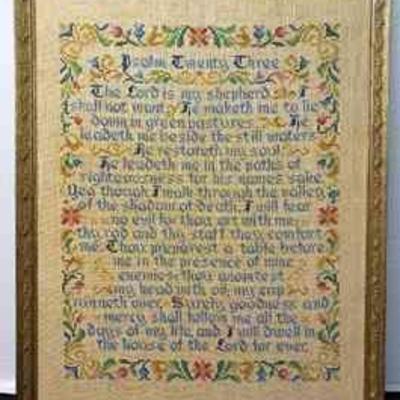 Psalm Twenty Three
The Lord is my shepherd I
shall not want. He maketh me to lie
down in green pastures. He
leadeth me beside the still waters
He restoreth my soul.
He leadeth me in the paths of
righteousness for his names sake
Yea though I walk through the valley
of the shadow of death, I will fear
no evil for thou art with me
thy rod and thy staff they comfort
me. Thou preparest a table before
me in the presence of mine
enemies: thou anointest
my head with oil; my cup
runneth over. Surely goodness and
mercy shall follow me all the
days of my life, and I will dwell in
the house of the Lord for ever.